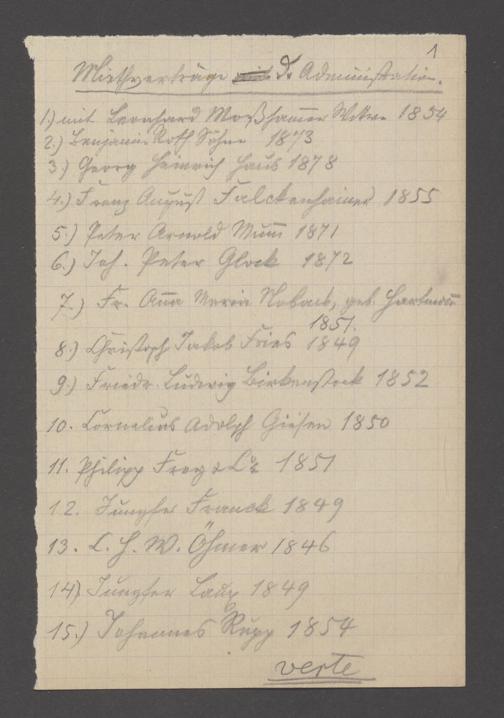 1
Miethverträge d. Administration.
1.) mit Leonhard Moßhamer Witwe 1854
2.) Benjamin Roth Söhne 1873
3.) Georg Heinrich Haus 1878
4.) Franz August Falckenhainer 1855
5.) Peter Arnold Mum̅ 1871
6.) Joh. Peter Glock 1872
7.) Fr. Anna Maria Noback, geb. Hartmann
1851.
8.) Christoph Jakob Fries 1849
9.) Friedr. Ludwig Birkenstock 1852
10. Cornelius Adolph Giesen 1850
11. Philipp & Co 1851
12. Jungfer Franck 1849
13. C. H. W. Öhmer 1846
14) Jungfer 1849
15.) Johannes Rupp 1854
verte